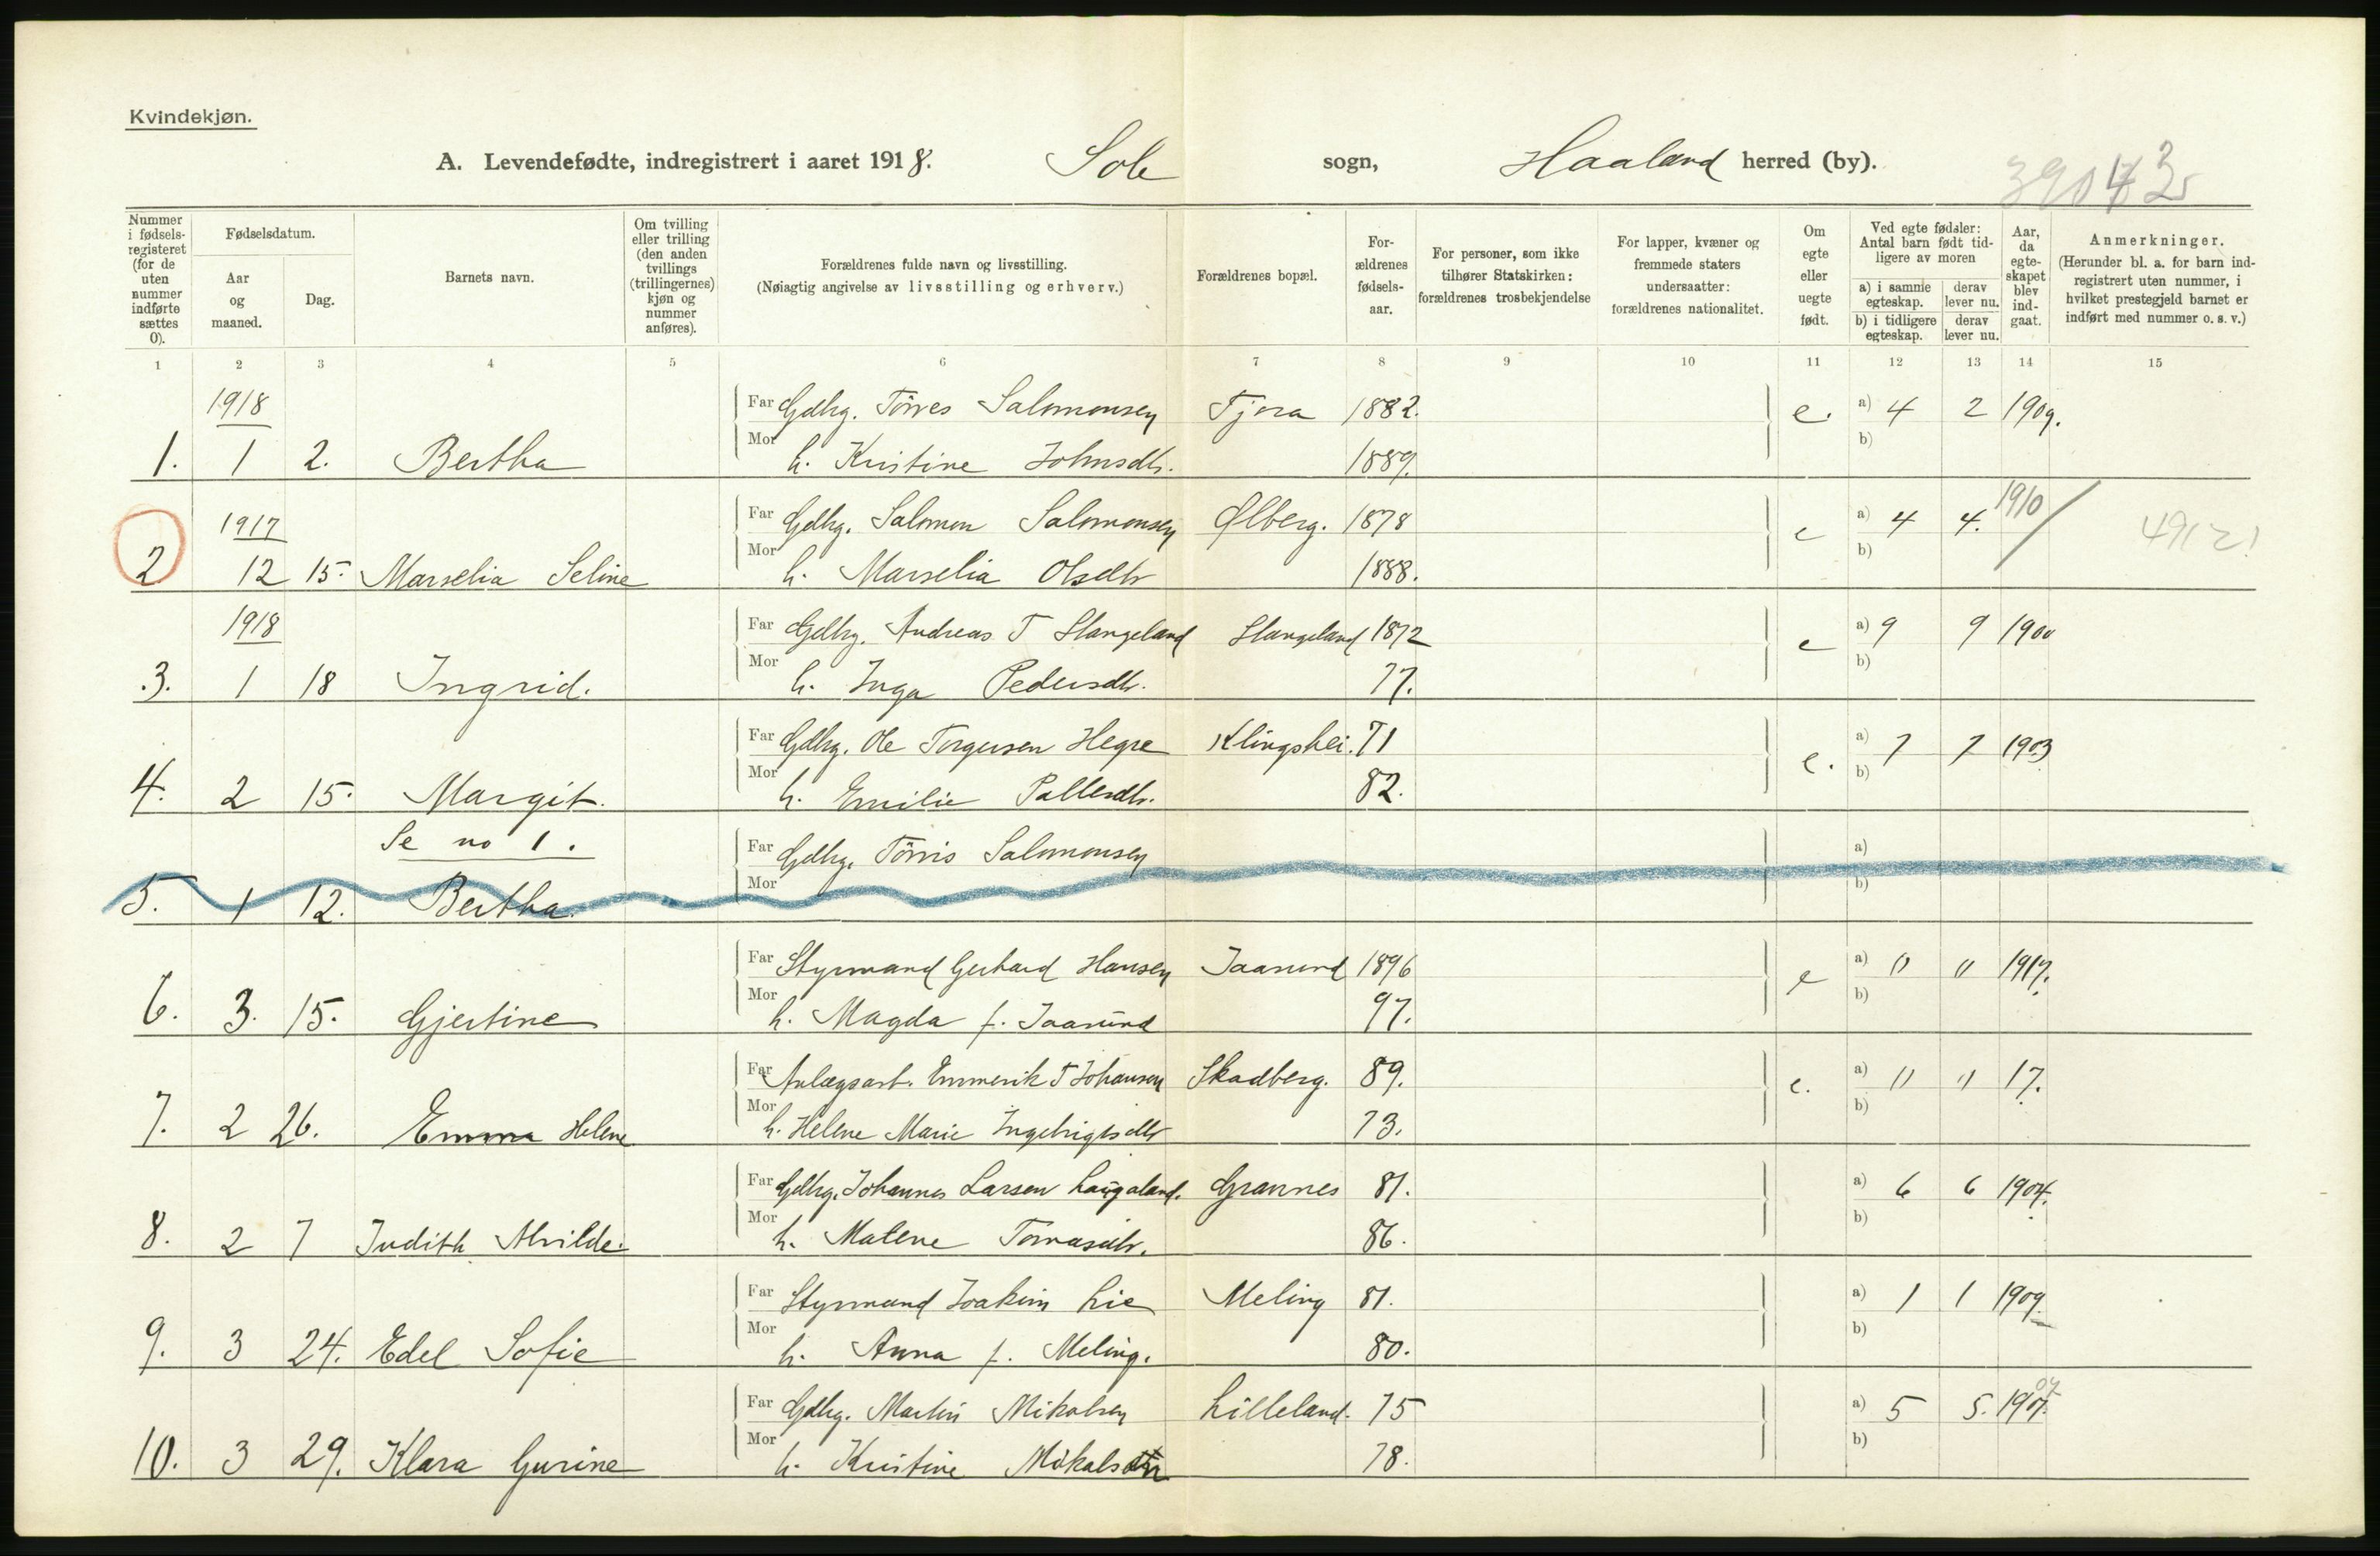 Kvindekjøn.
A. Levendefødte, indregistrert i aaret 1918. Sole sogn, Haaland herred (by).
Nummer i fødsels-registeret (for de uten nummer indførte sættes 0).
Fødselsdatum.
Aar og maaned.
Dag.
Barnets navn.
Om tvilling eller trilling (den anden tvillings (trillingernes) kjøn og nummer anføres).
Forældrenes fulde navn og livsstilling.
(Nøiagtig angivelse av livsstilling og erhverv.)
Forældrenes bopæl.
For-ældrenes fødsels-aar.
For personer, som ikke tilhører Statskirken: forældrenes trosbekjendelse
For lapper, kvæner og fremmede staters undersaatter: forældrenes nationalitet.
Om egte eller uegte født.
Ved egte fødsler: Antal barn født tid-ligere av moren
a) i samme egteskap. derav lever nu.
b) i tidligere egteskap. derav lever nu.
Aar, da egte-skapet blev ind-gaat.
Anmerkninger.
(Herunder bl. a. for barn ind-registrert uten nummer, i hvilket prestegjeld barnet er indført med nummer o. s. v.)
1 2 3 4 5 6 7 8 9 10 11 12 13 14 15
1918 Far Gdbrg. Törres Salomonsen Tjora 1882. e. a) 4 2 1909.
1. 1 2. Bertha Mor h. Kristine Johnsdtr. 1889. b)
1917 Far Gdbrg. Salomon Salomonsen Ølberg. 1878 e a) 4 4. 1910
2 12 15. Marselia Seline Mor h. Marselia Olsdtr 1888. b)
1918 Far Gdbrg. Andreas T Stangeland Stangeland 1872 e a) 9 9 1900
3. 1 18 Ingrid. Mor h. Inga Pedersdtr. 77. b)
Far Gdbrg. Ole Torgersen Hegre Klingshei. 71 e. a) 7 7 1903
4. 2 15. Margit. Mor h. Emilie Pallesdtr. 82. b)
Se no 1. Far Gdbrg. Törris Salomonsen a)
5. 1 12. Bertha. Mor b)
Far Styrmand Gerhard Hansen Jaasund 1896 e a) " " 1917.
6. 3. 15. Gjertine Mor h. Magda f. Jaasund 97. b)
Far Anlægsarb. Emmerik T Johansen Skadberg. 89. e. a) " " 17.
7. 2 26. Emma Helene Mor h. Helene Marie Ingebrigtsdtr 73. b)
Far Gdbrg. Johannes Larsen Haugaland. Grannes 81. a) 6 6 1904.
8. 2 7 Judith Alvilde. Mor h. Malene Tomasdtr. 86. b)
Far Styrmand Joakim Lie Meling 81. a) 1 1 1909.
9. 3 24. Edel Sofie Mor h. Anna f. Meling. 80. b)
Far Gdbrg. Martin Mikalsen Lilleland. 75 a) 5 5.
10. 3 29. Klara Gurine Mor h. Kristine 78. b)